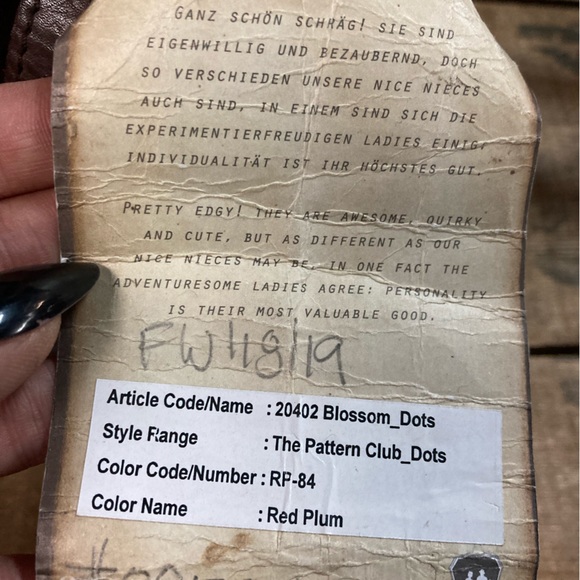 GANZ SCHÖN SCHRÄG! SIE SIND
EIGENWILLIG UND BEZAUBERND, DOCH
SO VERSCHIEDEN UNSERE NICE NIECES
AUCH SIND, IN EINEM SIND SICH DIE
EXPERIMENTIERFREUDIGEN LADIES EINIG,
INDIVIDUALITÄT IST IHR HÖCHSTES GUT.
PRETTY EDGY! THEY ARE AWESOME, QUIRKY
AND CUTE, BUT AS DIFFERENT AS OUR
NICE NIECES MAY BE, IN ONE FACT THE
ADVENTURESOME LADIES AGREE: PERSONALITY
IS THEIR MOST VALUABLE GOOD.
FW/18/19
Article Code/Name : 20402 Blossom_Dots
Style Range : The Pattern Club_Dots
Color Code/Number : RP-84
Color Name : Red Plum